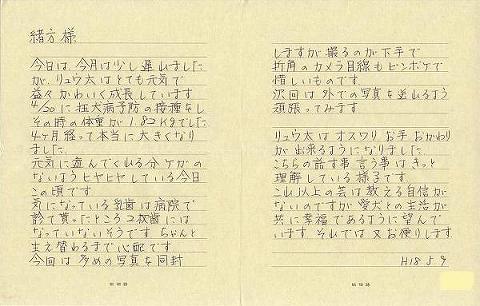 緒方様
今日は、今月は少し遅れました
が、リュウ太はとても元気で
益々かわいく成長しています
4/30に狂犬病予防の接種をし
その時の体重が1.82kgでした
4ヶ月経って本当に大きくなり
ました
元気に遊んでくれる分ケガの
ないようヒヤヒヤしている今日
この頃です
気になっている乳歯は病院で
診て貰ったところ2枚歯には
なっていないそうです ちゃんと
生え替わるまで心配です
今回は多めの写真を同封
しますが撮るのが下手で
折角のカメラ目線もピンボケで
惜しいものです
次回は外での写真を送れるよう
頑張ってみます
リュウ太はオスワリお手おかわり
が出来るようになりました
こちらの話す事言う事はきっと
理解している様子です
これ以上の芸は教える自信が
ないのですが愛犬との生活が
共に幸福であるように望んで
います それでは又お便りします
H18.5.9